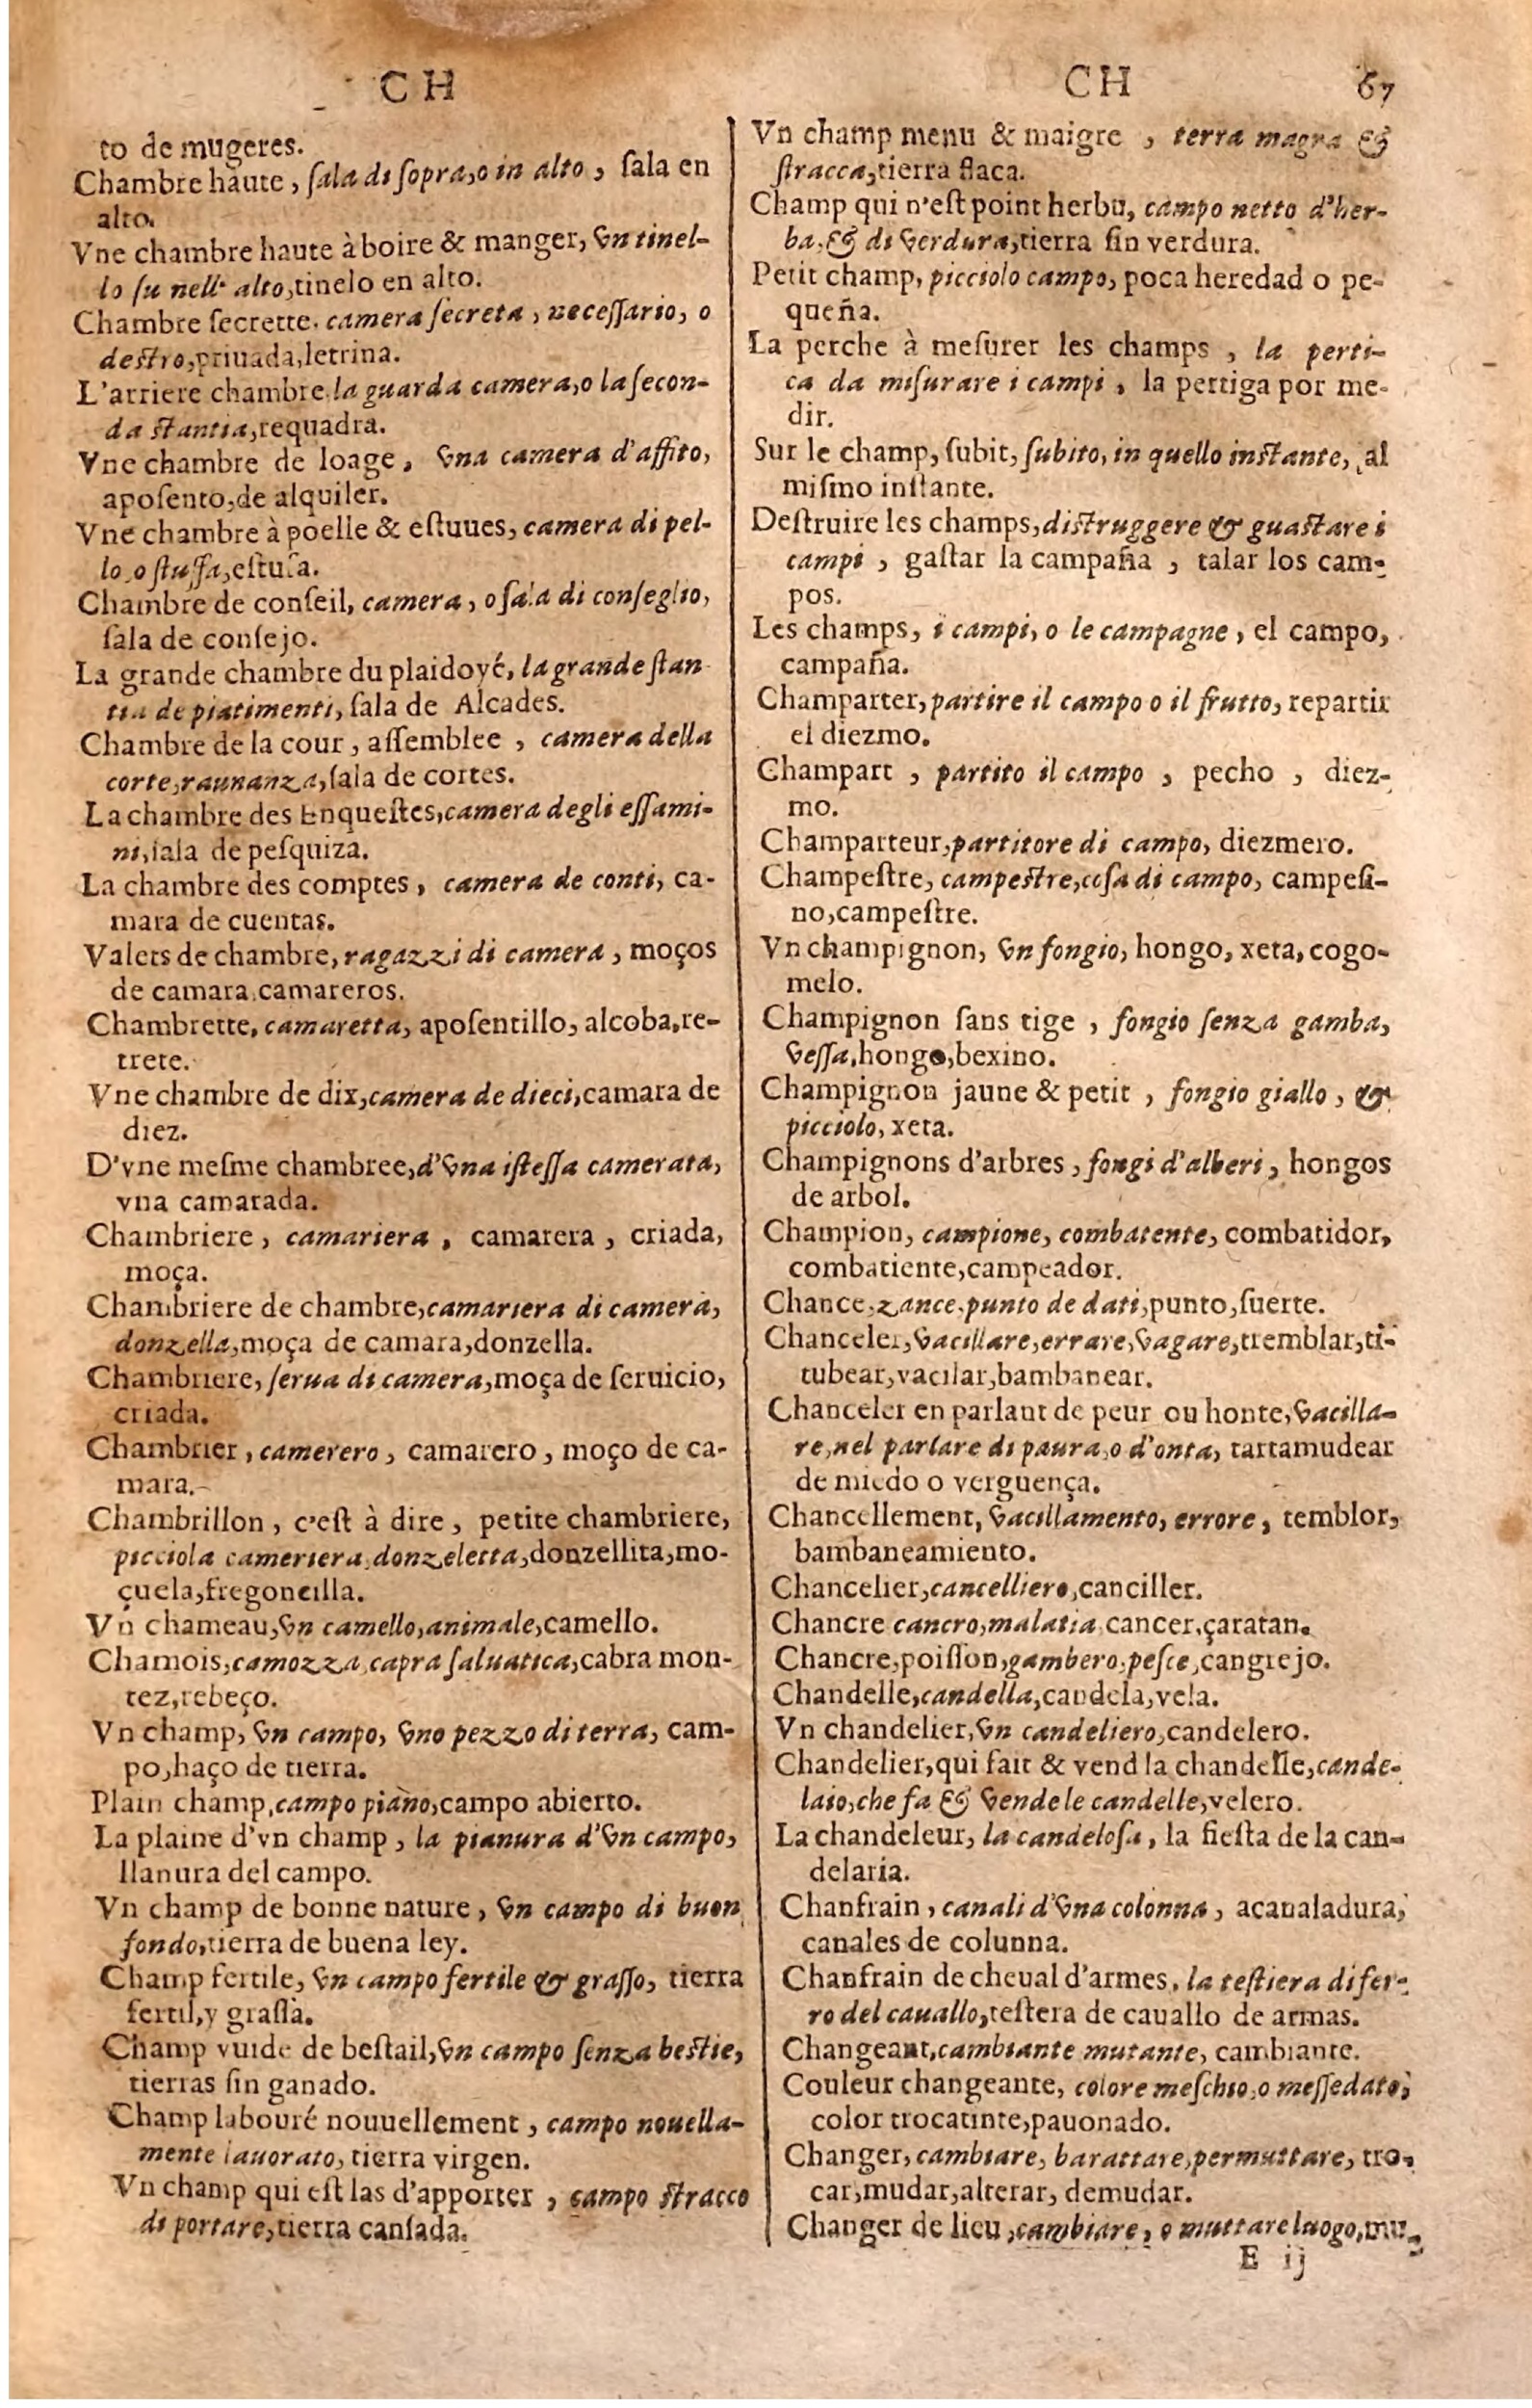 CH
to de mugeres.
Chambre haute, ſala di ſopra, o in alto, ſala en
alto.
Vne chambre haute à boire & manger, vn tinel-
lo ſu nell' alto, tinelo en alto.
Chambre ſecrette. camera ſecreta, neceſſario, o
deſtro, priuada, letrina.
L'arriere chambre. la guarda camera, o la ſecon-
da ſtantia, requadra.
Vne chambre de loage, vna camera d'affito,
apoſento, de alquiler.
Vne chambre à poelle & eſtuues, camera di pel-
lo, o ſtuffa, eſtufa.
Chambre de conſeil, camera, o ſala di conſeglio,
ſala de conſejo.
La grande chambre du plaidoyé, la grande ſtan
tia de piatimenti, ſala de Alcades.
Chambre de la cour, aſſemblee, camera della
corte, raunanza, ſala de cortes.
La chambre des Enqueſtes, camera degli eſſami-
ni, ſala de peſquiza.
La chambre des comptes, camera de conti, ca-
mara de cuentas.
Valets de chambre, ragazzi di camera, moços
de camara, camareros.
Chambrette, camaretta, apoſentillo, alcoba, re-
trete.
Vne chambre de dix, camera de dieci, camara de
diez.
D'vne meſme chambree, d'vna iſteſſa camerata,
vna camarada.
Chambriere, camariera, camarera, criada,
moça.
Chambriere de chambre, camariera di camera,
donzella, moça de camara, donzella.
Chambriere, ſerua di camera, moça de ſeruicio,
criada.
Chambrier, camerero, camarero, moço de ca-
mara.
Chambrillon, c'eſt à dire, petite chambriere,
picciola cameriera, donzeletta, donzellita, mo-
çuela, fregoncilla.
Vn chameau, vn camello, animale, camello.
Chamois, camozza, capra ſaluatica, cabra mon-
tez, rebeço.
Vn champ, vn campo, vno pezzo di terra, cam-
po, haço de tierra.
Plain champ, campo piano, campo abierto.
La plaine d'vn champ, la pianura d'vn campo,
llanura del campo.
Vn champ de bonne nature, vn campo di buon
fondo, tierra de buena ley.
Champ fertile, vn campo fertile & graſſo, tierra
fertil, y graſſa.
Champ vuide de beſtail, vn campo ſenza beſtie,
tierras ſin ganado.
Champ labouré nouuellement, campo nouella-
mente lauorato, tierra virgen.
Vn champ qui eſt las d'apporter, campo ſtracco
di portare, tierra canſada.
CH 67
Vn champ menu & maigre, terra magra &
ſtracca, tierra flaca.
Champ qui n'eſt point herbu, campo netto d'her-
ba, & di verdura, tierra ſin verdura.
Petit champ, picciolo campo, poca heredad o pe-
queña.
La perche à meſurer les champs, la perti-
ca da miſurare i campi, la pertiga por me-
dir.
Sur le champ, ſubit, ſubito, in quello inſtante, al
miſmo inſtante.
Deſtruire les champs, diſtruggere & guaſtare i
campi, gaſtar la campaña, talar los cam-
pos.
Les champs, i campi, o le campagne, el campo,
campaña.
Champarter, partire il campo o il frutto, repartir
el diezmo.
Champart, partito il campo, pecho, diez-
mo.
Champarteur, partitore di campo, diezmero.
Champeſtre, campeſtre, coſa di campo, campeſi-
no, campeſtre.
Vn champignon, vn fongio, hongo, xeta, cogo-
melo.
Champignon ſans tige, fongio ſenza gamba,
veſſa, hongo, bexino.
Champignon jaune & petit, fongio giallo, &
picciolo, xeta.
Champignons d'arbres, fongi d'alberi, hongos
de arbol.
Champion, campione, combatente, combatidor,
combatiente, campeador.
Chance, zance, punto de dati, punto, ſuerte.
Chanceler, vacillare, errare, vagare, tremblar, ti-
tubear, vacilar, bambanear.
Chanceler en parlant de peur ou honte, vacilla-
re, nel parlare di paura, o d'onta, tartamudear
de miedo o verguença.
Chancellement, vacillamento, errore, temblor,
bambaneamiento.
Chancelier, cancelliero, canciller.
Chancre cancro, malatia, cancer, çaratan.
Chancre, poiſſon, gambero, peſce, cangrejo.
Chandelle, candella, candela, vela.
Vn chandelier, vn candeliero, candelero.
Chandelier, qui fait & vend la chandelle, cande-
laio, che fa & vende le candelle, velero.
La chandeleur, la candeloſa, la fieſta de la can-
delaria.
Chanfrain, canali d'vna colonna, acanaladura,
canales de colunna.
Chanfrain de cheual d'armes, la teſtiera di fer-
ro del cauallo, teſtera de cauallo de armas.
Changeant, cambiante mutante, cambiante.
Couleur changeante, colore meſchio, o meſſedato,
color trocatinte, pauonado.
Changer, cambiare, barattare, permuttare, tro-
car, mudar, alterar, demudar.
Changer de lieu, cambiare, o muttare luogo, mu-
E ij